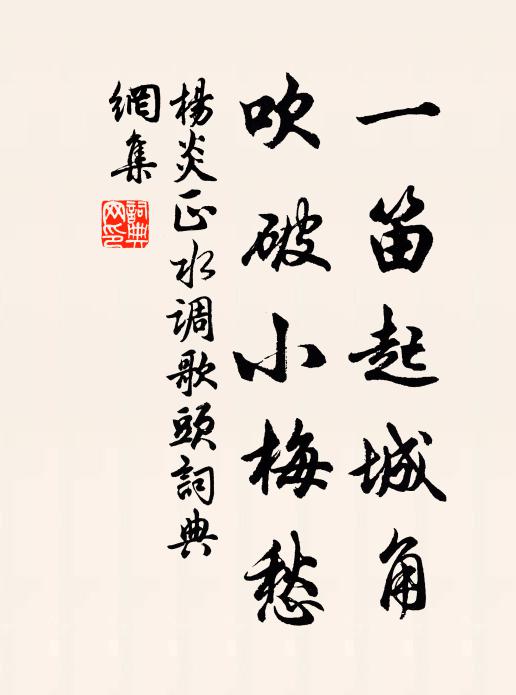 一笛起城角
吹破小梅愁
楊炎正水调歌頭詞典
網集
詞典
网印